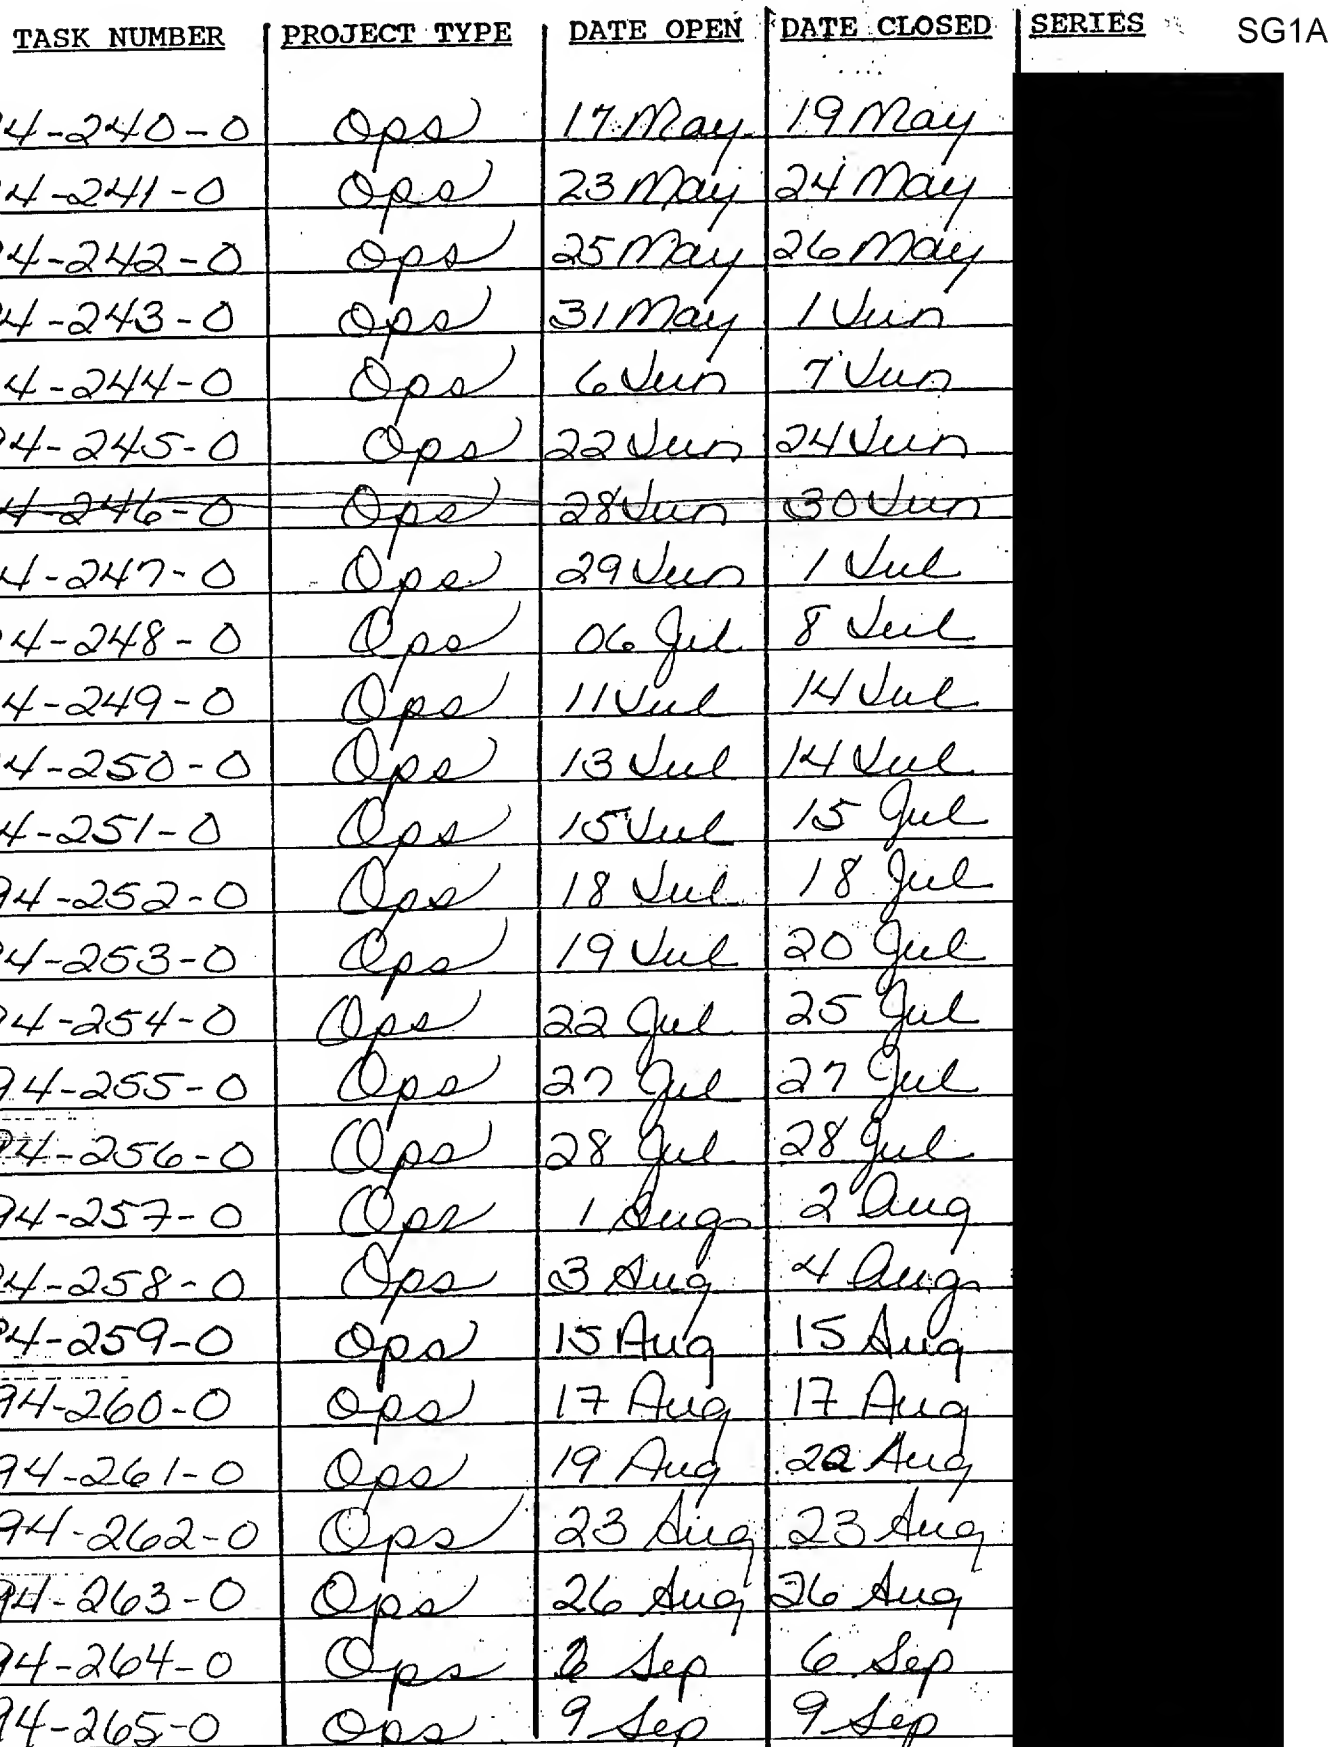 TASK NUMBER PROJECT TYPE DATE OPEN DATE CLOSED SERIES SG1A
4-240-0 Ops 17 May 19 May
4-241-0 Ops 23 May 24 May
4-242-0 Ops 25 May 26 May
4-243-0 Ops 31 May 1 Jun
4-244-0 Ops 6 Jun 7 Jun
94-245-0 Ops 22 Jun 24 Jun
4-246-0 Ops 28 Jun 30 Jun
4-247-0 Ops 29 Jun 1 Jul
4-248-0 Ops 06 Jul 8 Jul
4-249-0 Ops 11 Jul 14 Jul
4-250-0 Ops 13 Jul 14 Jul
4-251-0 Ops 15 Jul 15 Jul
94-252-0 Ops 18 Jul 18 Jul
94-253-0 Ops 19 Jul 20 Jul
94-254-0 Ops 22 Jul 25 Jul
94-255-0 Ops 27 Jul 27 Jul
94-256-0 Ops 28 Jul 28 Jul
94-257-0 Ops 1 Aug 2 Aug
94-258-0 Ops 3 Aug 4 Aug
94-259-0 Ops 15 Aug 15 Aug
94-260-0 Ops 17 Aug 17 Aug
94-261-0 Ops 19 Aug 22 Aug
94-262-0 Ops 23 Aug 23 Aug
94-263-0 Ops 26 Aug 26 Aug
94-264-0 Ops Sep 6 Sep
94-265-0 Ops 9 Sep 9 Sep